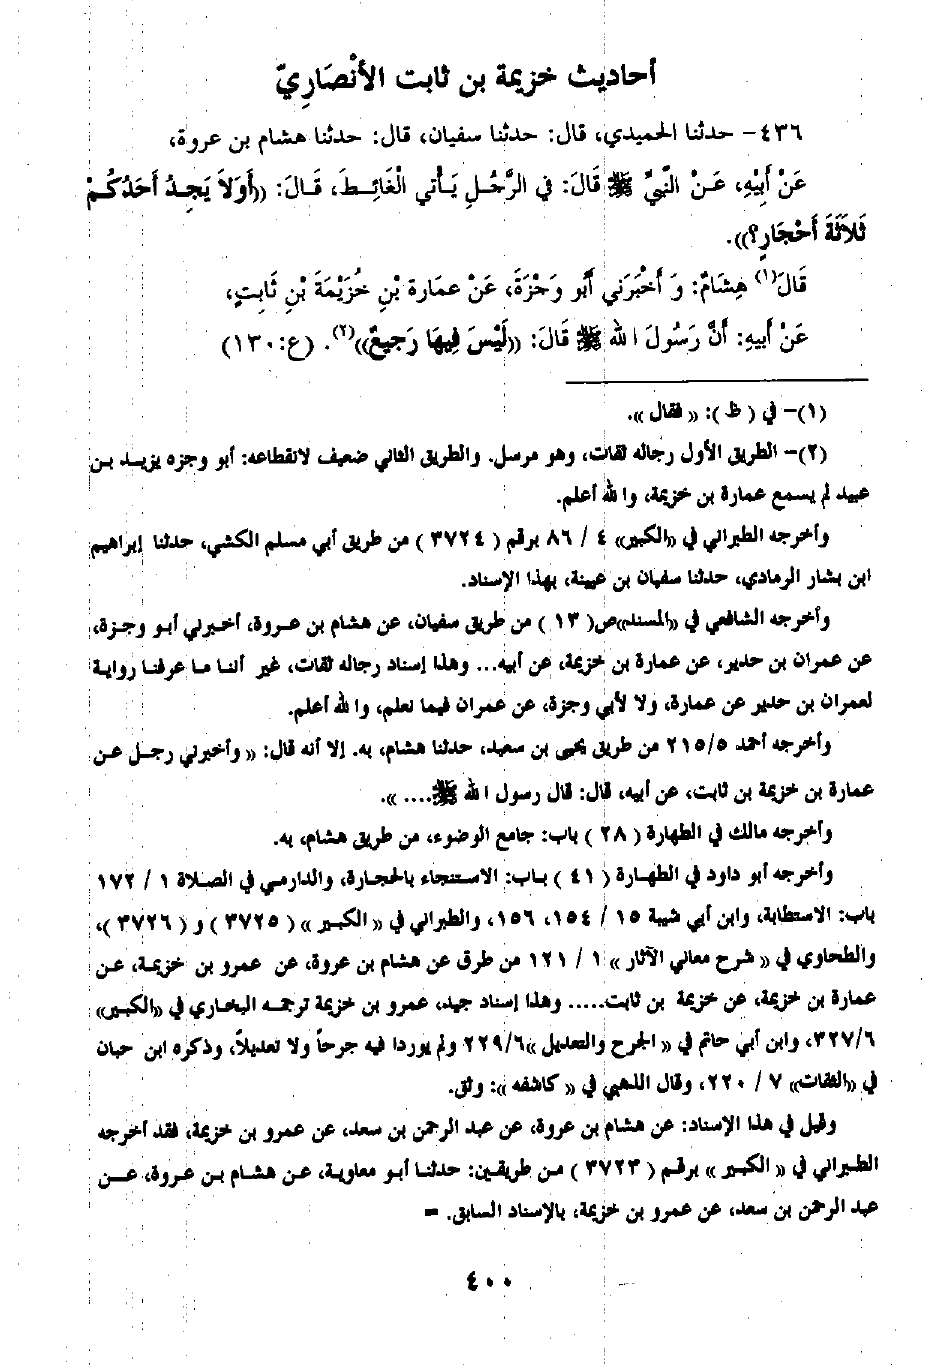 أحاديث خزيمة بن ثابت الأنْصَارِيّ
٤٣٦- حدثنا الحميدي، قال: حدثنا سفيان، قال: حدثنا هشام بن عروة،
عَنْ أَبِيْهِ، عَـنْ النَّبِيِّ ﷺ قَالَ: فِي الرَّجُلِ يَـأْتي الْغَائِـطَ، قَـالَ: ((أَوَلاَ يَجِـدُ أَحَدُكُـمْ
ثَلاَثَةَ أَحْجَارٍ؟)).
قَالَ(١) هِشَامٌ: وَ أَخْبَرَني أَبُو وَجْزَةَ، عَنْ عمَارة بْنِ خُزَيْمَةَ بْنِ ثَابِتٍ،
عَنْ أَبيهِ: أَنَّ رَسُولَ ا لله ﷺ قَالَ: ((لَيْسَ فِيهَا رَجيعٌ))(٢). (ع:١٣٠)
(١)- في ( ظ ): (( فقال )).
(٢)- الطريق الأول رجاله ثقات، وهو مرسل. والطريق الثاني ضعيف لانقطاعه: أبو وجزه يزيـد بـن
عبيد لم يسمع عمارة بن خزيمة، وا لله أعلم.
وأخرجه الطبراني في ((الكبير)) ٤ / ٨٦ برقم ( ٣٧٢٤ ) من طريق أبي مسلم الكشي، حدثنا إبراهيم
ابن بشار الرمادي، حدثنا سفيان بن عيينة، بهذا الإسناد.
وأخرجه الشافعي في ((المسند))ص( ١٣ ) من طريق سفيان، عن هشام بن عـروة، أخـبرني أبـو وجـزة،
عن عمران بن حدير، عن عمارة بن خزيمة، عن أبيه... وهذا إسناد رجاله ثقات، غير أننـا مـا عرفنـا روايـة
لعمران بن حدير عن عمارة، ولا لأبي وجزة، عن عمران فيما نعلم، وا لله أعلم.
وأخرجه أحمد ٢١٥/٥ من طريق يحيى بن سعيد، حدثنا هشام، به. إلا أنه قال: (( وأخبرني رجـل عـن
عمارة بن خزيمة بن ثابت، عن أبيه، قال: قال رسول ا لله ﷺ.... )).
وأخرجه مالك في الطهارة ( ٢٨ ) باب: جامع الوضوء، من طريق هشام، به.
وأخرجه أبو داود في الطهـارة ( ٤١ ) بـاب: الاسـتنجاء بالحجـارة، والدارمـي في الصـلاة ١ / ١٧٢
باب: الاستطابة، وابن أبي شيبة ١٥ / ١٥٤، ١٥٦، والطبراني في (( الكبـير )) ( ٣٧٢٥ ) و ( ٣٧٢٦ )،
والطحاوي في (( شرح معاني الآثار )) ١ / ١٢١ من طرق عن هشام بن عروة، عن عمرو بن خزيمـة، عـن
عمارة بن خزيمة، عن خزيمة بن ثابت..... وهذا إسناد جيد، عمرو بن خزيمة ترجمـه البخـاري في ((الكبـير))
٣٢٧/٦، وابن أبي حاتم في (( الجرح والتعديل ))٢٢٩/٦ ولم يوردا فيه جرحاً ولا تعديلاً، وذكره ابن حبان
في ((الثقات)) ٧ / ٢٢٠، وقال الذهبي في (( كاشفه )): وثق.
وقيل في هذا الإسناد: عن هشام بن عروة، عن عبد الرحمن بن سعد، عن عمرو بن خزيمة، فقد أخرجه
الطـبراني في (( الكبير )) برقـم ( ٣٧٢٣ ) مـن طريقـين: حدثنـا أبـو معاويـة، عـن هشـام بـن عـروة، عـن
عبد الرحمن بن سعد، عن عمرو بن خزيمة، بالإسناد السابق. =
٤٠٠